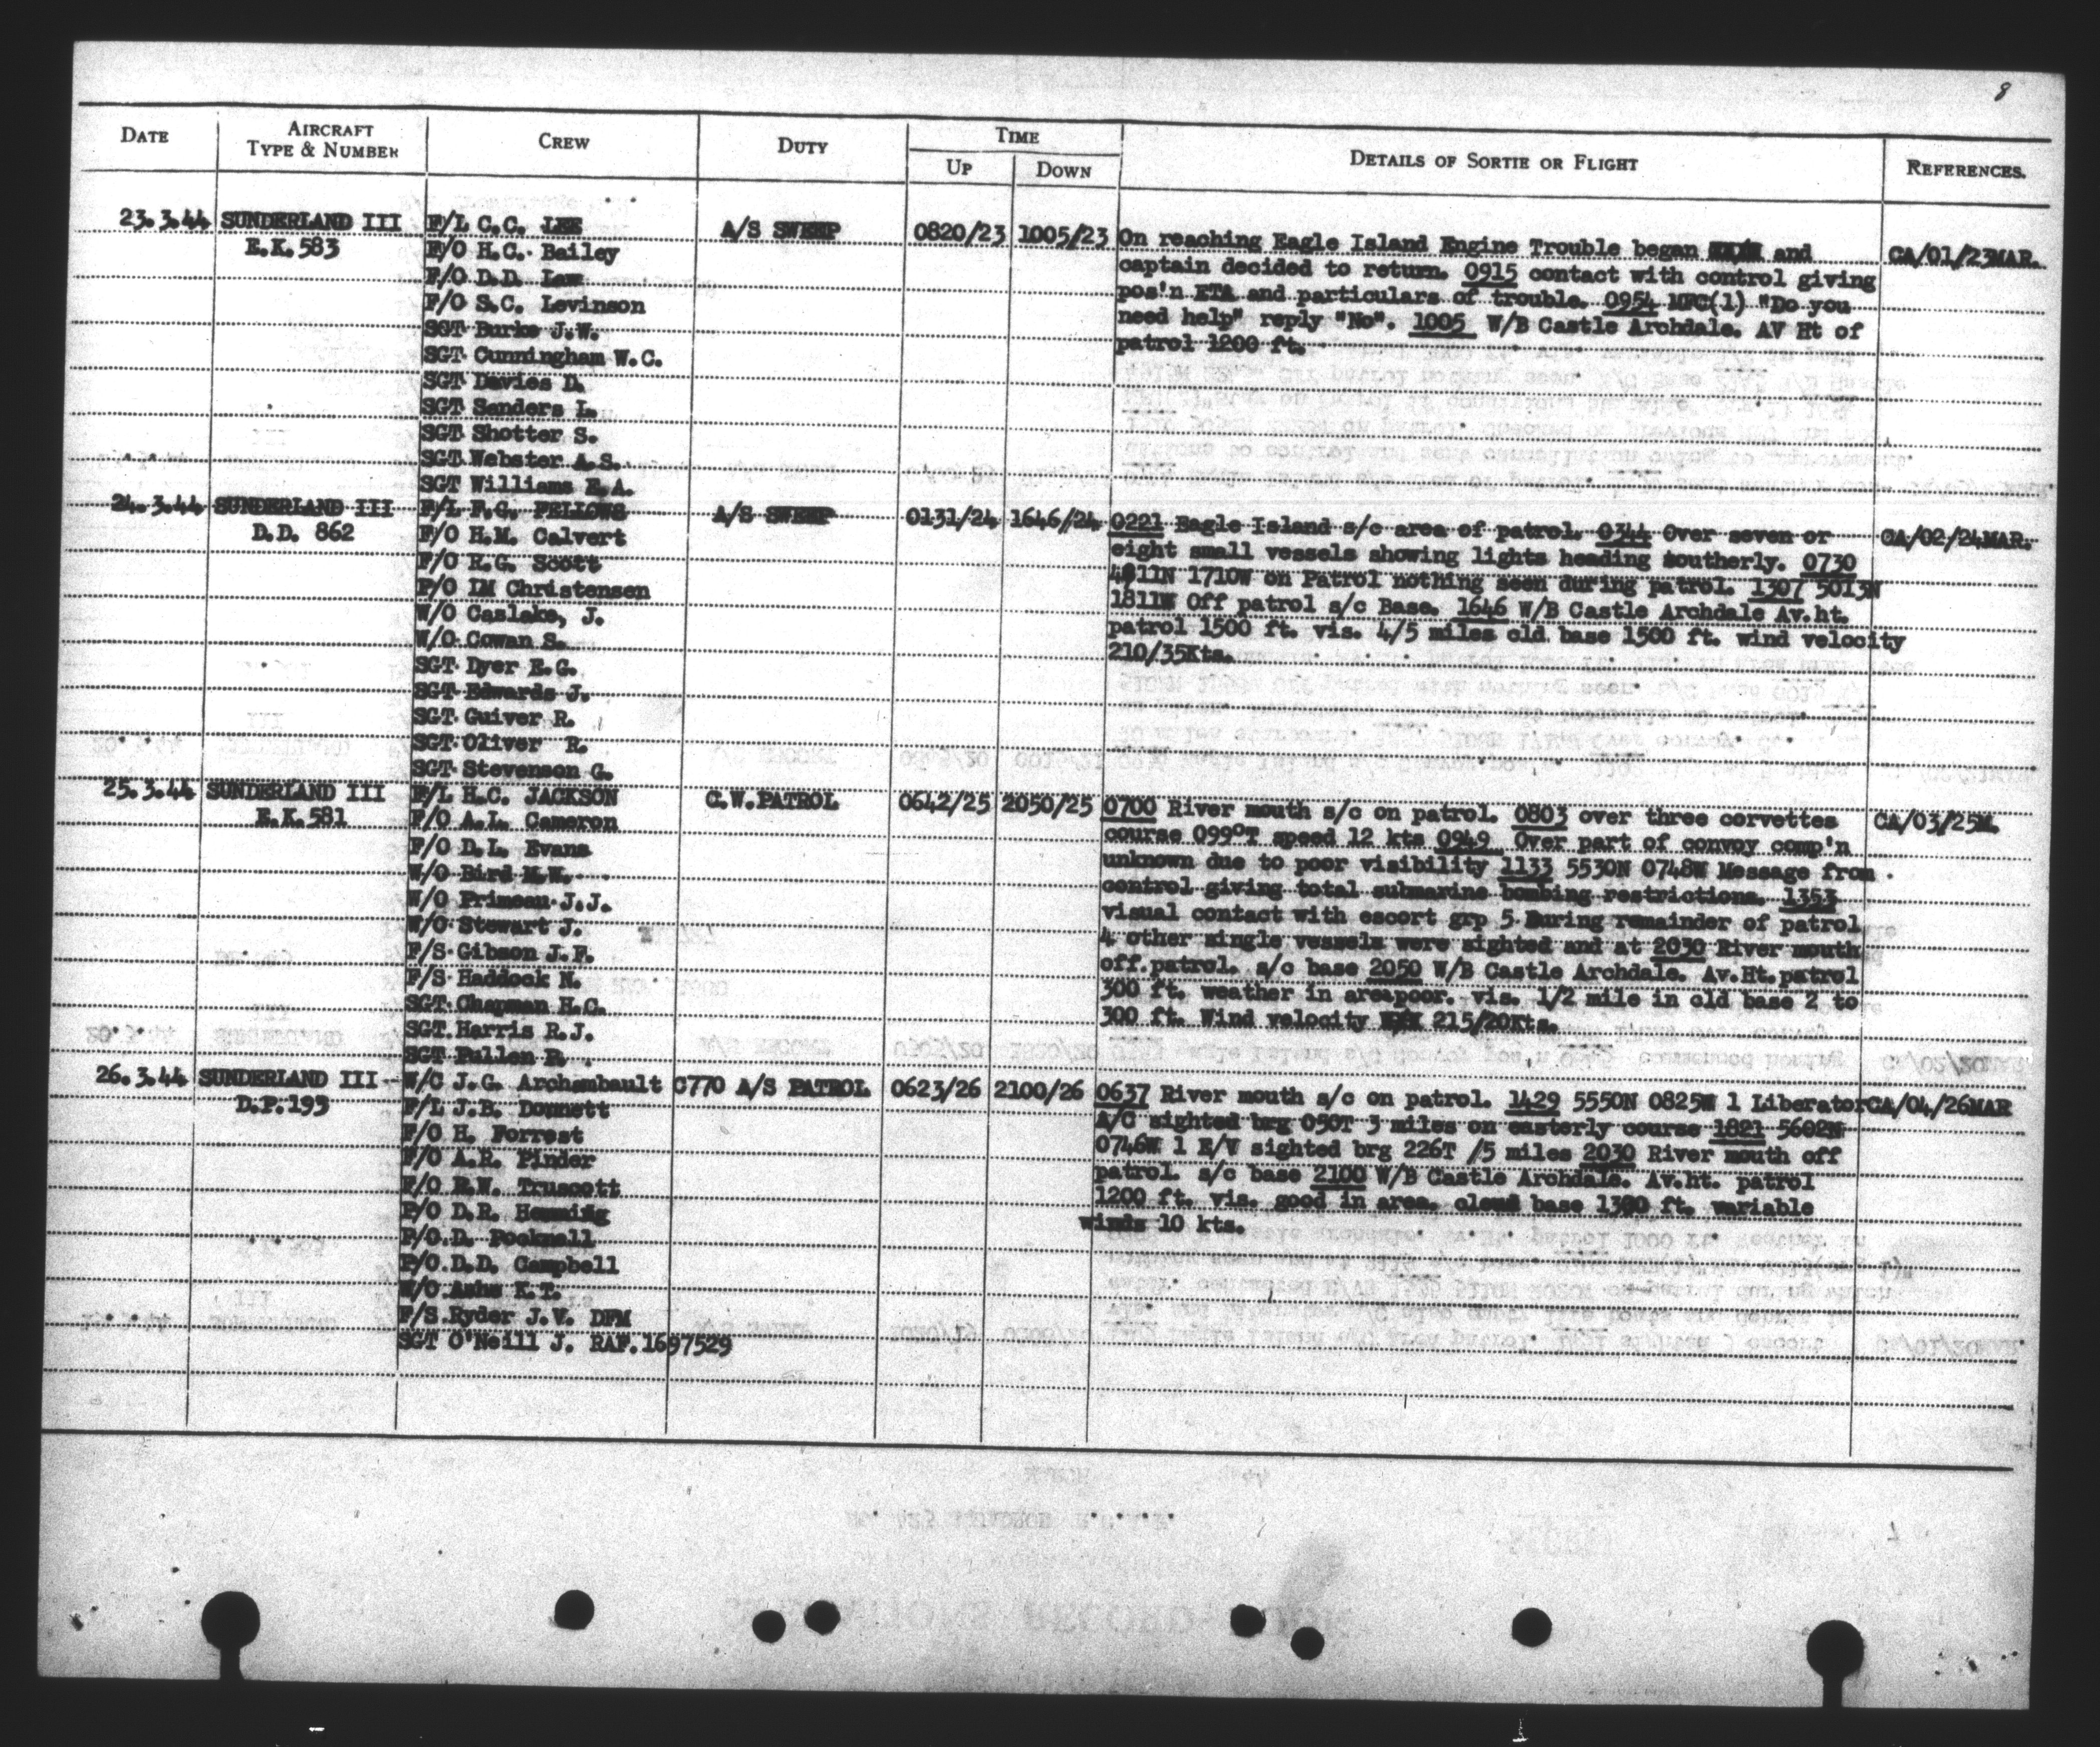 8
DATE
AIRCRAFT
TYPE & NUMBER
CREW
DUTY
TIME
UP
DOWN
DETAILS OF SORTIE OR FLIGHT
REFERENCES.
23.3.44 SUNDERLAND III
E.K.583
F/L C.C. LEE
F/O H.C. Bailey
F/O D.D. Law
F/O S.C. Levinson
SGT Burke J.W.
SGT Cunningham W.C.
SGT Davies D.
SGT Sanders L.
SGT Shotter S.
SGT Webster A.S.
SGT Williams E.A.
A/S SWEEP
0820/23 1005/23
On reaching Eagle Island Engine Trouble began and
captain decided to return. 0915 contact with control giving
pos'n ETA and particulars of trouble. 0954 MFC(1) "Do you
need help" reply "No". 1005 W/B Castle Archdale. AV Ht of
patrol 1200 ft.
CA/01/23MAR.
24.3.44 SUNDERLAND III
D.D. 862
F/L F.G. FELLOWS
F/O H.M. Calvert
F/O R.G. Scott
F/O LM Christensen
W/O Caslake, J.
W/O Cowan S.
SGT Dyer E.G.
SGT Edwards J.
SGT Guiver R.
SGT Oliver R.
SGT Stevenson G.
A/S SWEEP
0131/24 1646/24
0221 Eagle Island s/c area of patrol. 0344 Over seven or
eight small vessels showing lights heading southerly. 0730
4811N 1710W on Patrol nothing seen during patrol. 1307 5013N
1811W Off patrol s/c Base. 1646 W/B Castle Archdale Av.ht.
patrol 1500 ft. vis. 4/5 miles cld base 1500 ft. wind velocity
210/35Kts.
CA/02/24MAR.
25.3.44 SUNDERLAND III
E.K.581
F/L H.C. JACKSON
F/O A.L. Cameron
F/O D.L. Evans
W/O Bird M.W.
W/O Primeau J.J.
W/O Stewart J.
F/S Gibson J.F.
F/S Haddock N.
SGT Chapman H.C.
SGT Harris R.J.
SGT Pullen R.
C.W.PATROL
0642/25 2050/25
0700 River mouth s/c on patrol. 0803 over three corvettes
course 099°T speed 12 kts 0949 Over part of convoy comp'n
unknown due to poor visibility 1133 5530N 0748W Message from
control giving total submarine bombing restrictions. 1353
visual contact with escort grp 5 During remainder of patrol
4 other single vessels were sighted and at 2030 River mouth
off patrol. s/c base 2050 W/B Castle Archdale. Av.Ht.patrol
300 ft. weather in areapoor. vis. 1/2 mile in cld base 2 to
300 ft. Wind velocity 215/20Kts.
CA/03/25M.
26.3.44 SUNDERLAND III
D.P.193
W/C J.G. Archambault
F/L J.B. Donnett
F/O H. Forrest
F/O A.R. Pinder
F/O R.W. Truscott
P/O D.R. Hemming
P/O D. Pocknell
P/O D.D. Campbell
W/O Ashe K.T.
F/S Ryder J.V. DFM
SGT O'Neill J. RAF.1697529
C770 A/S PATROL
0623/26 2100/26
0637 River mouth s/c on patrol. 1429 5550N 0825W 1 Liberator
A/C sighted brg 050T 3 miles on easterly course 1821 5602N
0746W 1 E/V sighted brg 226T /5 miles 2030 River mouth off
patrol. s/c base 2100 W/B Castle Archdale. Av.ht. patrol
1200 ft. vis. good in area. cloud base 1300 ft. variable
winds 10 kts.
CA/04/26MAR